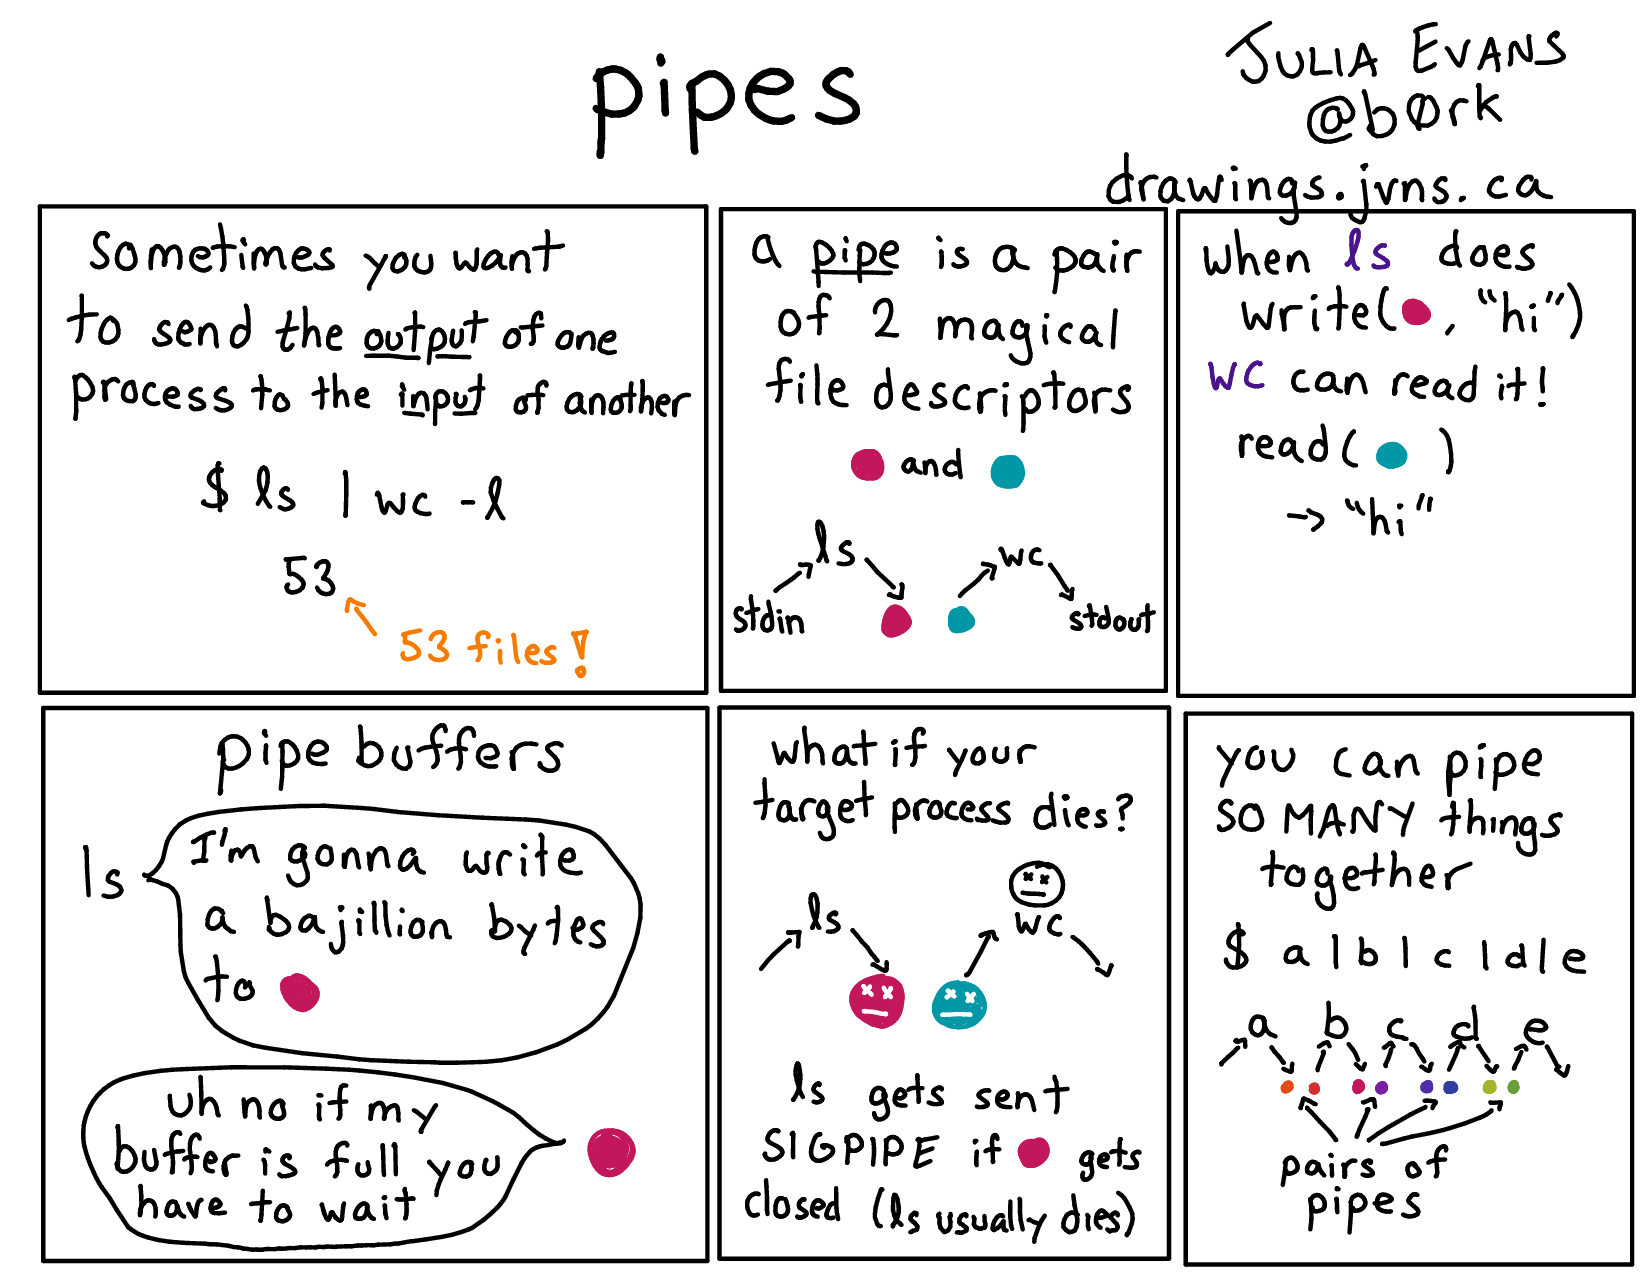 pipes
JULIA EVANS
@b0rk
drawings.jvns.ca
sometimes you want
to send the output of one
process to the input of another
$ ls | wc -l
53
53 files!
a pipe is a pair
of 2 magical
file descriptors
and
ls
wc
stdin
stdout
when ls does
write( , "hi")
wc can read it!
read( )
→ "hi"
pipe buffers
ls
I'm gonna write
a bajillion bytes
to
uh no if my
buffer is full you
have to wait
what if your
target process dies?
ls
wc
ls gets sent
SIGPIPE if gets
closed (ls usually dies)
you can pipe
SO MANY things
together
$ a|b|c|d|e
a b c d e
pairs of
pipes